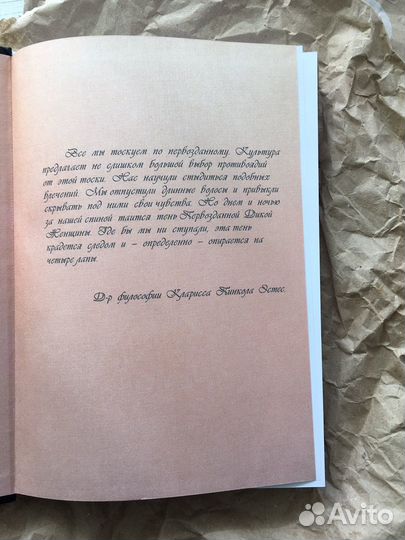 Все мы тоскуем по первозданному. Культура
предлагает не слишком большой выбор противоядий
от этой тоски. Нас научили стыдиться подобных
влечений. Мы отпустили длинные волосы и привыкли
скрывать под ними свои чувства. Но днем и ночью
за нашей спиной таится тень Первозданной Дикой
Женщины. Где бы мы ни ступали, эта тень
крадется следом и – определенно – опирается на
четыре лапы.
Д-р философии Кларисса Пинкола Эстес.
Avito